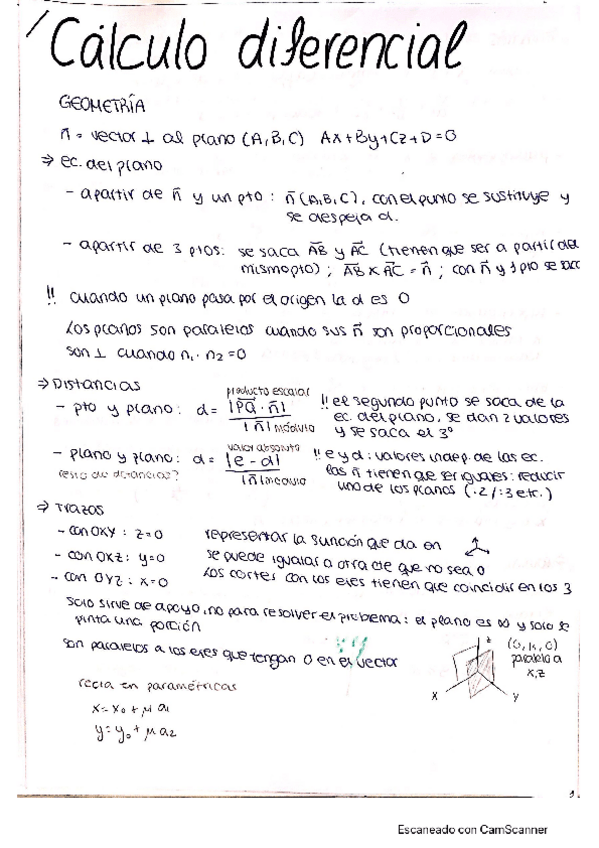 Cálculo diferencial
GEOMETRÍA
n̄ = vector ⊥ al plano (A, B, C) Ax+By+Cz+D=0
⇒ ec. del plano
- apartir de n̄ y un pto : n̄ (A,B,C), con el punto se sustituye y
se despeja d.
- apartir de 3 ptos: se saca AB̄ y AC̄ (tienen que ser a partir del
mismo pto) ; AB̄ x AC̄ = n̄ ; con n̄ y 1 pto se saca
!! cuando un plano pasa por el origen la d es 0
Los planos son paralelos cuando sus n̄ son proporcionales
son ⊥ cuando n₁ · n₂ = 0
⇒ Distancias
producto escalar
- pto y plano: d = |PQ̄ · n̄| / |n̄| módulo
!! el segundo punto se saca de la
ec. del plano, se dan 2 valores
y se saca el 3º
valor absoluto
- plano y plano: d = |e - d| / |n̄| módulo
resto de distancias?
!! e y d : valores indep. de las ec.
las n̄ tienen que ser iguales : reducir
uno de los planos (·2/:3 etc.)
⇒ Trazas
- con OXY : z=0
- con OXZ : y=0
- con OYZ : x=0
representar la función que da en
se puede igualar a otra de que no sea 0
Los cortes con los ejes tienen que coincidir en los 3
solo sirve de apoyo, no para resolver el problema : el plano es ∞ y solo se
pinta una porción
son paralelos a los ejes que tengan 0 en el vector
z
(0, k, 0)
paralelo a
x,z
x
y
recta en paramétricas
x = x₀ + μ a₁
y = y₀ + μ a₂
Escaneado con CamScanner